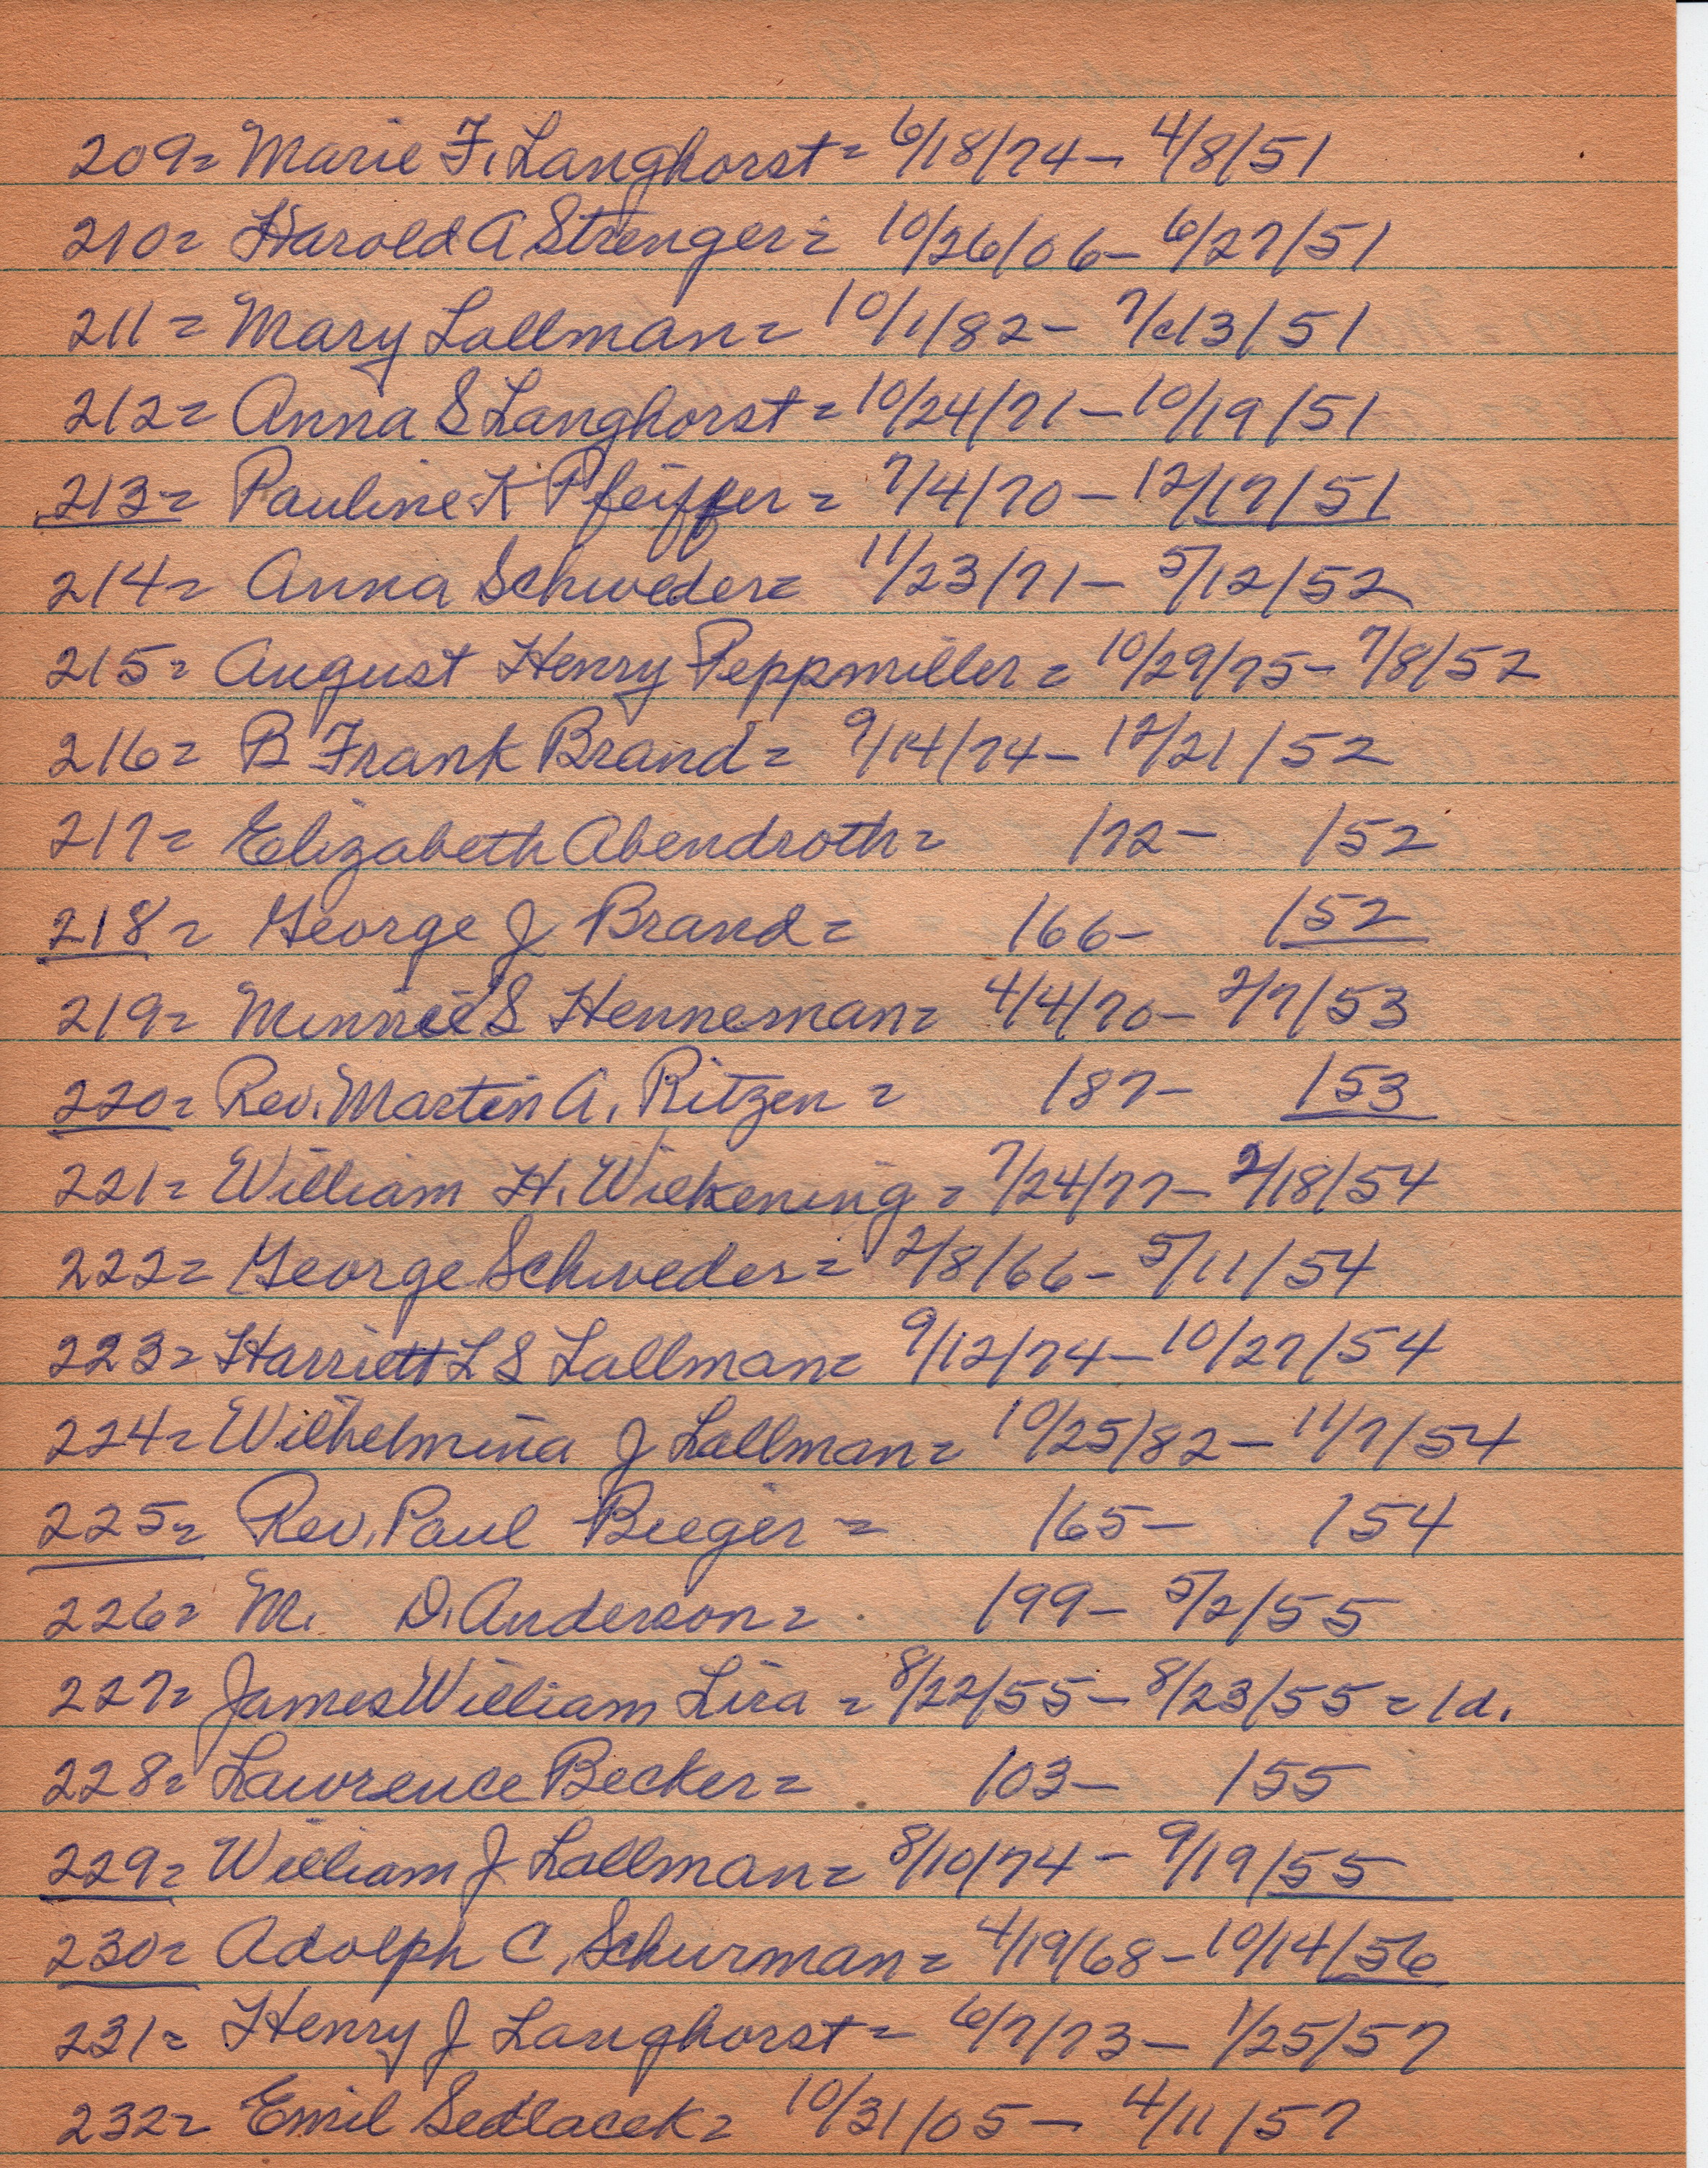 209= Marie F. Langhorst= 6/18/74- 4/8/51
210= Harold A Strenger= 10/26/06- 6/27/51
211= Mary Lallman= 10/1/82- 7/13/51
212= Anna S Langhorst= 10/24/71- 10/19/51
213= Pauline K Pfeiffer= 7/4/70- 12/17/51
214= Anna Schweder= 11/23/71- 5/12/52
215= August Henry Peppmiller= 10/29/75- 7/8/52
216= B Frank Brand= 9/14/74- 12/21/52
217= Elizabeth Abendroth= /72- /52
218= George J Brand= /66- /52
219= Minnie S Henneman= 4/4/70- 2/7/53
220= Rev. Martin A. Ritzen= /87- /53
221= William H. Wilkening= 7/24/77- 2/18/54
222= George Schweder= 2/8/66- 5/11/54
223= Harriett L S Lallman= 9/12/74- 10/27/54
224= Wilhelmina J Lallman= 10/25/82- 11/7/54
225= Rev. Paul Bieger= /65- /54
226= M. D. Anderson= /99- 5/2/55
227= James William Lira= 8/22/55- 8/23/55= 1d.
228= Lawrence Becker= /03- /55
229= William J Lallman= 8/10/74- 9/19/55
230= Adolph C. Schurman= 4/19/68- 10/14/56
231= Henry J Langhorst= 6/7/73- 1/25/57
232= Emil Sedlacek= 10/31/05- 4/11/57